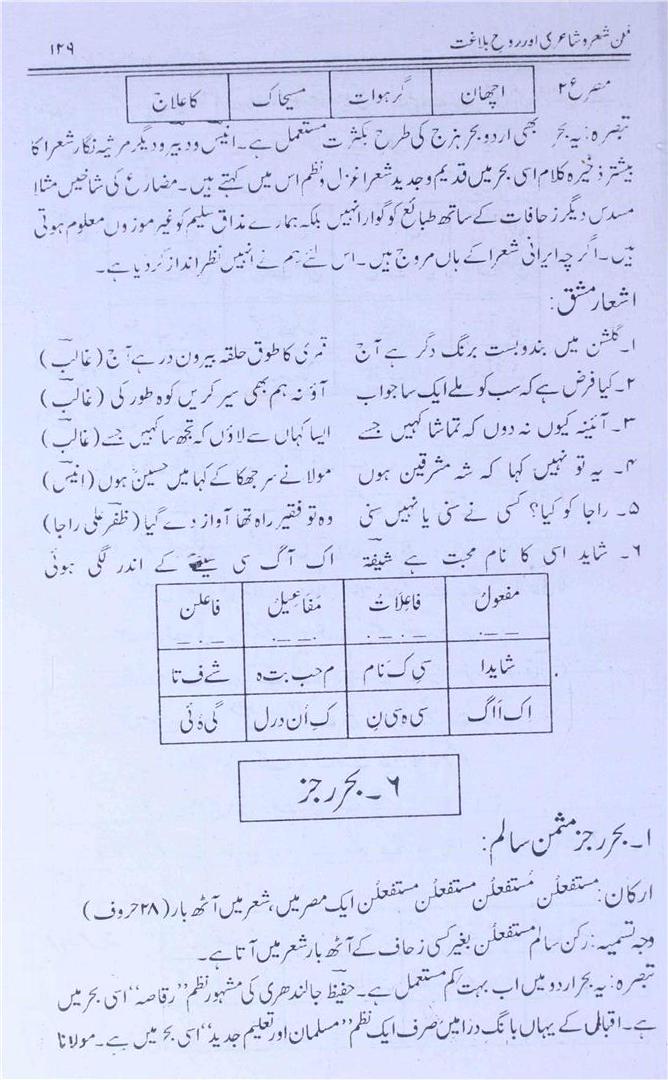 فن شعر و شاعری اور روح بلاغت ۱۲۹
مصرع ۲ اچھان گر ہوات مسیحاک کا علاج
تبصرہ: یہ بحر بھی اردو بحر ہزج کی طرح بکثرت مستعمل ہے۔ انیس و دبیر و دیگر مرثیہ نگار شعرا کا
بیشتر ذخیرہ کلام اسی بحر میں قدیم و جدید شعرا غزل و نظم اس میں کہتے ہیں۔ مضارع کی شاخیں مثلا
مسدس دیگر زحافات کے ساتھ طبائع کو گوارا نہیں بلکہ ہمارے مذاق سلیم کو غیر موزوں معلوم ہوتی
ہیں۔ اگرچہ ایرانی شعرا کے ہاں مروج ہیں۔ اس لئے ہم نے انہیں نظر انداز کر دیا ہے۔
اشعار مشق:
۱۔ گلشن میں بندوبست برنگ دگر ہے آج قمری کا طوق حلقہ بیرون در ہے آج (غالب)
۲۔ کیا فرض ہے کہ سب کو ملے ایک سا جواب آؤ نہ ہم بھی سیر کریں کوہ طور کی (غالب)
۳۔ آئینہ کیوں نہ دوں کہ تماشا کہیں جسے ایسا کہاں سے لاؤں کہ تجھ سا کہیں جسے (غالب)
۴۔ یہ تو نہیں کہا کہ شہ مشرقین ہوں مولا نے سر جھکا کے کہا میں حسینؑ ہوں (انیس)
۵۔ راجا کو کیا؟ کسی نے سنی یا نہیں سنی وہ تو فقیر راہ تھا آواز دے گیا (ظفر علی راجا)
۶۔ شاید اسی کا نام محبت ہے شیفتہ اک آگ سی ہے سینے کے اندر لگی ہوئی
مفعولُ فاعِلَاتُ مَفَاعِیلُ فاعلن
شاید ا سیِ کَ نَام م حب بت ہ شے ف تا
اِک اَاگ سی ہ سی نِ کِ اُن در ل گی ہُ ئی
۶۔ بحر رجز
۱۔ بحر رجز مثمن سالم:
ارکان: مستفعلن مُستفعلُن مستفعلن مستفعلُن ایک مصر میں، شعر میں آٹھ بار (۲۸ حروف)
وجہ تسمیہ: رکن سالم مستفعلن بغیر کسی زحاف کے آٹھ بار شعر میں آتا ہے۔
تبصرہ: یہ بحر اردو میں اب بہت کم مستعمل ہے۔ حفیظ جالندھری کی مشہور نظم "رقاصہ" اسی بحر میں
ہے۔ اقبال کے یہاں بانگ درا میں صرف ایک نظم "مسلمان اور تعلیم جدید" اسی بحر میں ہے۔ مولانا